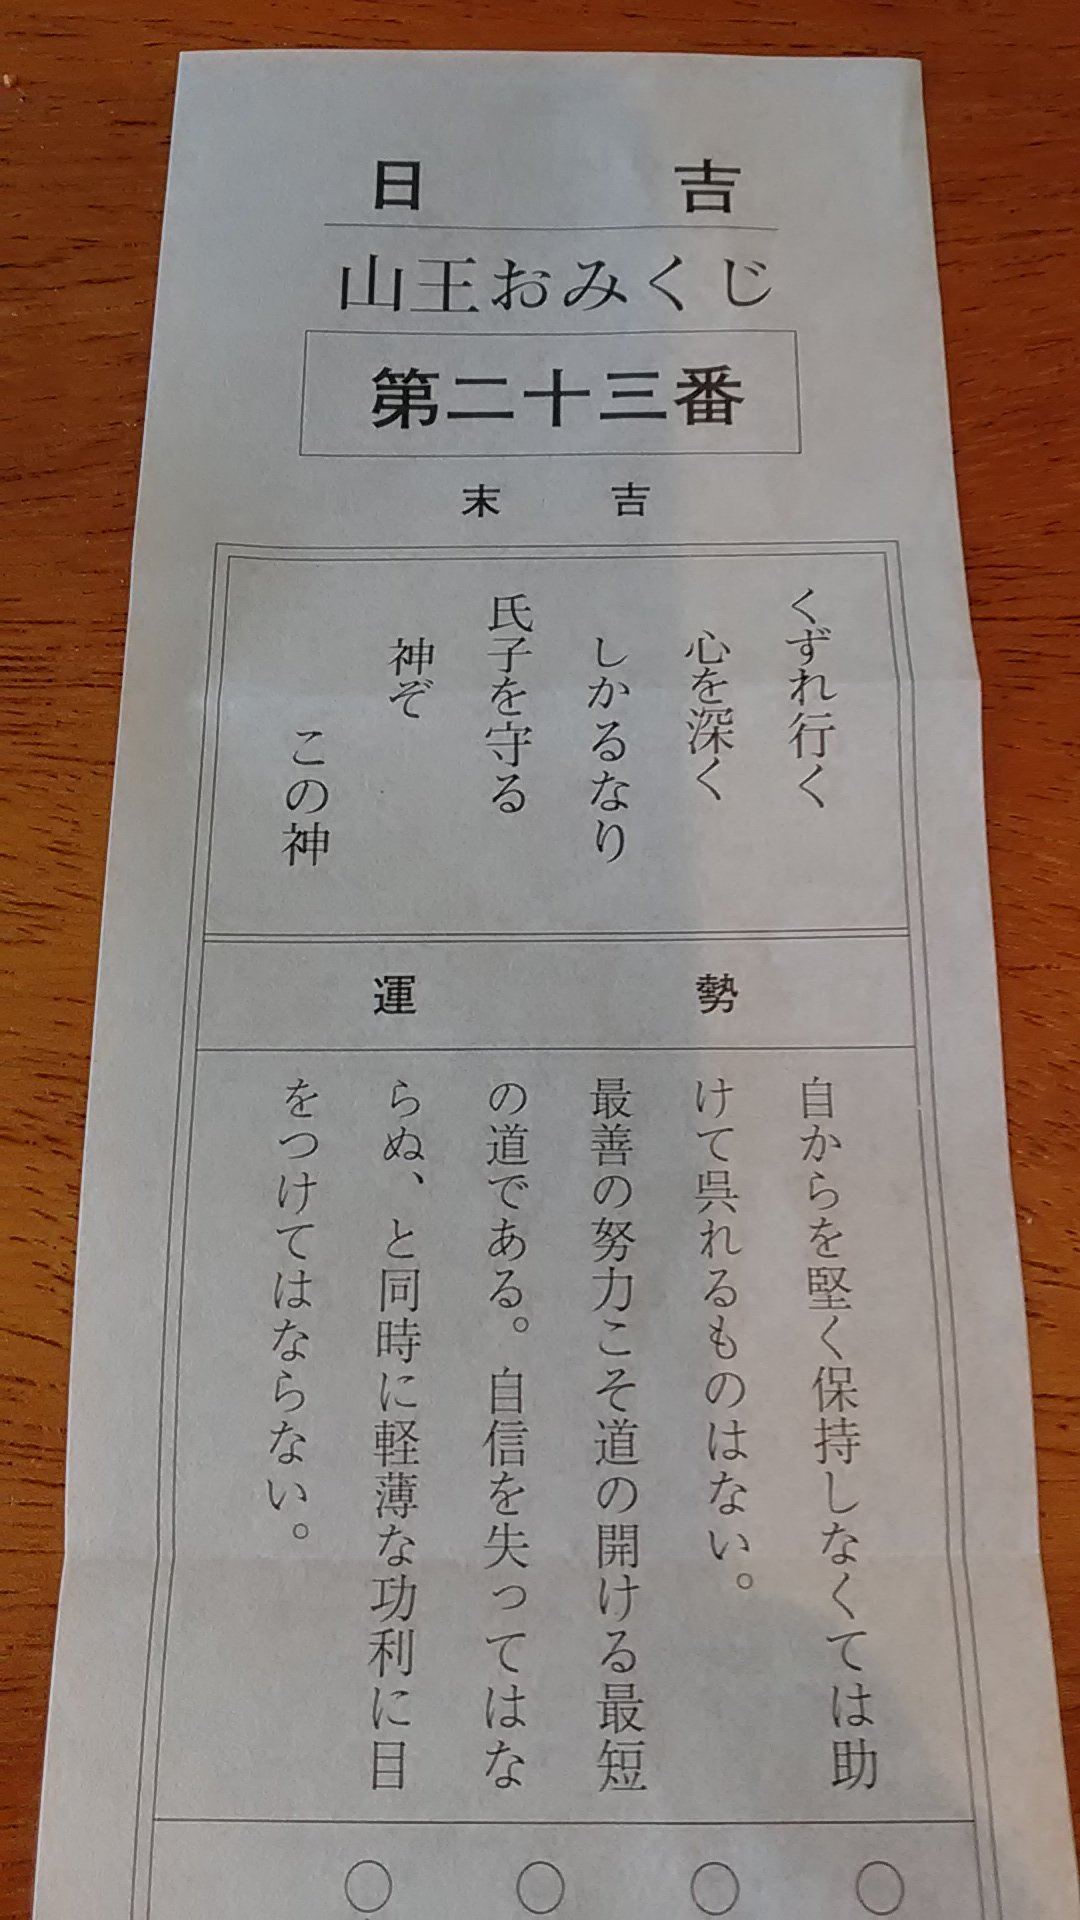 日吉
山王おみくじ
第二十三番
末吉
くずれ行く
心を深く
しかるなり
氏子を守る
神ぞ
この神
運勢
自からを堅く保持しなくては助
けて呉れるものはない。
最善の努力こそ道の開ける最短
の道である。自信を失ってはな
らぬ、と同時に軽薄な功利に目
をつけてはならない。
○
○
○
○